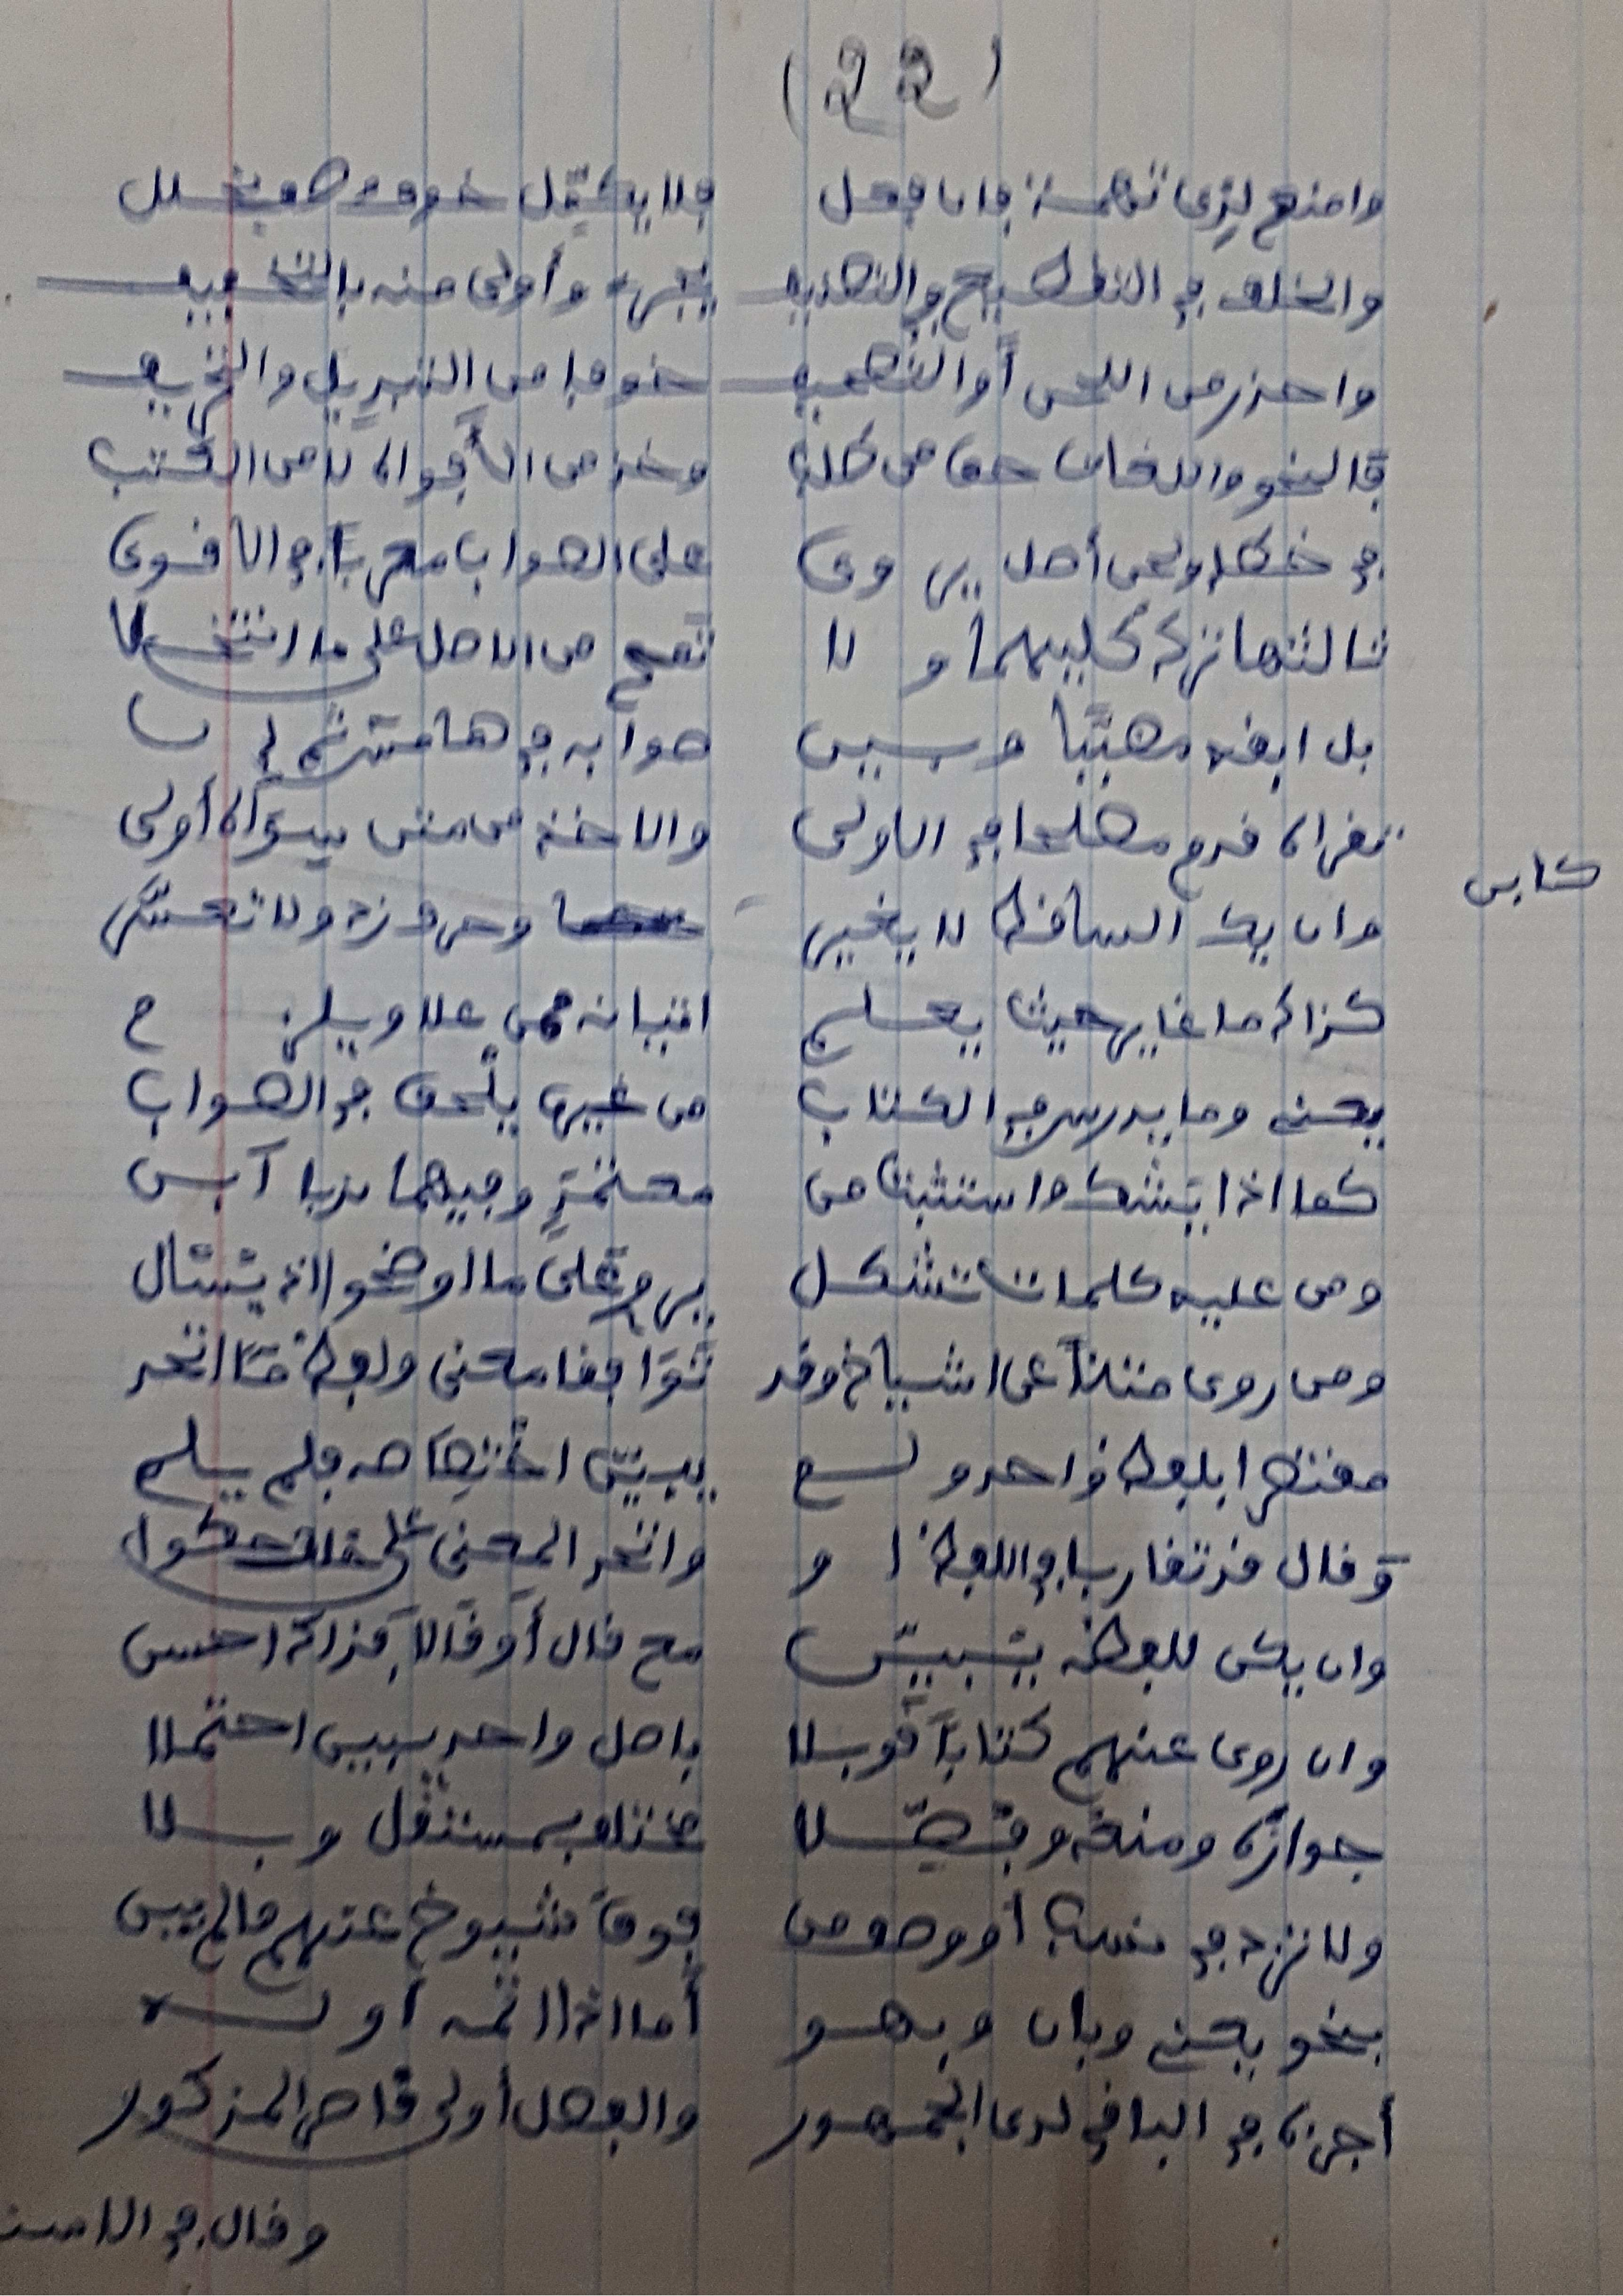 (22)
وامنع لذي تهمة فان فعل فلا يكمّل خوف وصف بخلل
والخلف في التقطيع والتصنيف يجري وأولى منه بالتخفيف
واحذر من اللحن أو التصحيف خوفا من التبديل والتحريف
فالنحو واللغات حق من طلب وخذ من الأفواه لا من الكتب
في خطإ ولحن أصل يروى على الصواب معربا في الأقوى
ثالثها ترك كليهما ولا تمح من الاصل على ما انتخلا
بل ابقه مضببا وبين صوابه في هامش ثم ان
تقراه قدم مصلحا في الاولى والاخذ من متن سواه أولى
وان يك الساقط لا يغير كابن وحرف زد ولا تعسّر
كذاك ما غاير حيث يعلم اتيانه ممن علا ويلزم
يعني وما يدرس في الكتاب من غيره يلحق في الصواب
كما اذا يشك واستثبت من معتمد وفيهما ندبا أبن
ومن عليه كلمات تشكل يروي على ما اوضحوا اذ يسأل
ومن روى متنا عن اشياخ وقد توافقا معنى ولفظ ما اتحد
مقتصرا بلفظ واحد ولم يبين اختصاصه فلم يلم
أو قال قد تقاربا في اللفظ او واتحد المعنى على خلف حكوا
وان يكن للفظه يبين مع قال أو قالا فذاك احسن
وان روى عنهم كتابا قوبلا باصل واحد يبين احتملا
جوازه ومنعه وفصّلا مختلف بمستقل وبلا
ولا تزد في نسب أو وصف من فوق شيوخ عنهم مالم يبن
بنحو يعني وبان وبهو أما اذا اتمه اوله
أجزه في الباقي لدى الجمهور والفصل أولى قاصر المذكور
وقال في الامس